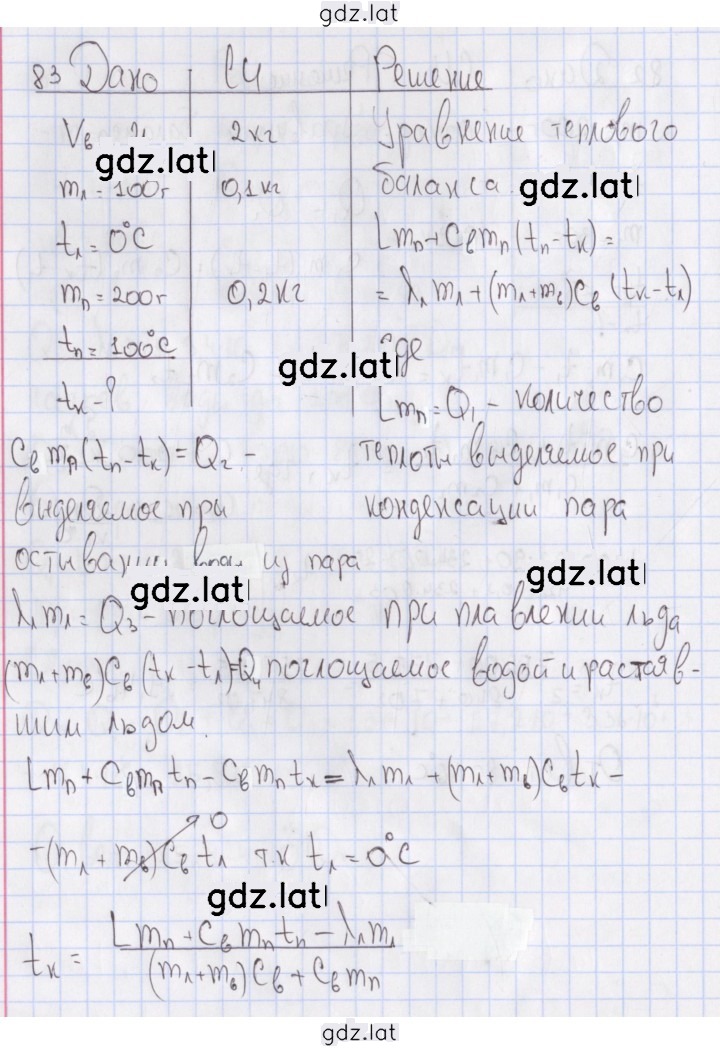 gdz.lat
83 Дано СИ Решение
Vв 2кг Уравнение теплового
gdz.lat
mл = 100г 0,1кг баланса
gdz.lat
tл = 0°C Lmп + Cвmп(tп - tк) =
mп = 200г 0,2кг = λлmл + (mл + mв)Cв(tк - tл)
tп = 100°C где
gdz.lat
tк - ? Lmп = Q1 - количество
Cвmп(tп - tк) = Q2 - теплоты выделяемое при
выделяемое при конденсации пара
остывании воды из пара
gdz.lat
gdz.lat
λлmл = Q3 - поглощаемое при плавлении льда
(mл + mв)Cв(tк - tл) = Q4 поглощаемое водой и растаяв-
шим льдом.
Lmп + Cвmпtп - Cвmпtк = λлmл + (mл + mв)Cвtк -
0
-(mл + mв)Cвtл т.к tл = 0°C
gdz.lat
tк = Lmп + Cвmпtп - λлmл
(mл + mв)Cв + Cвmп
gdz.lat